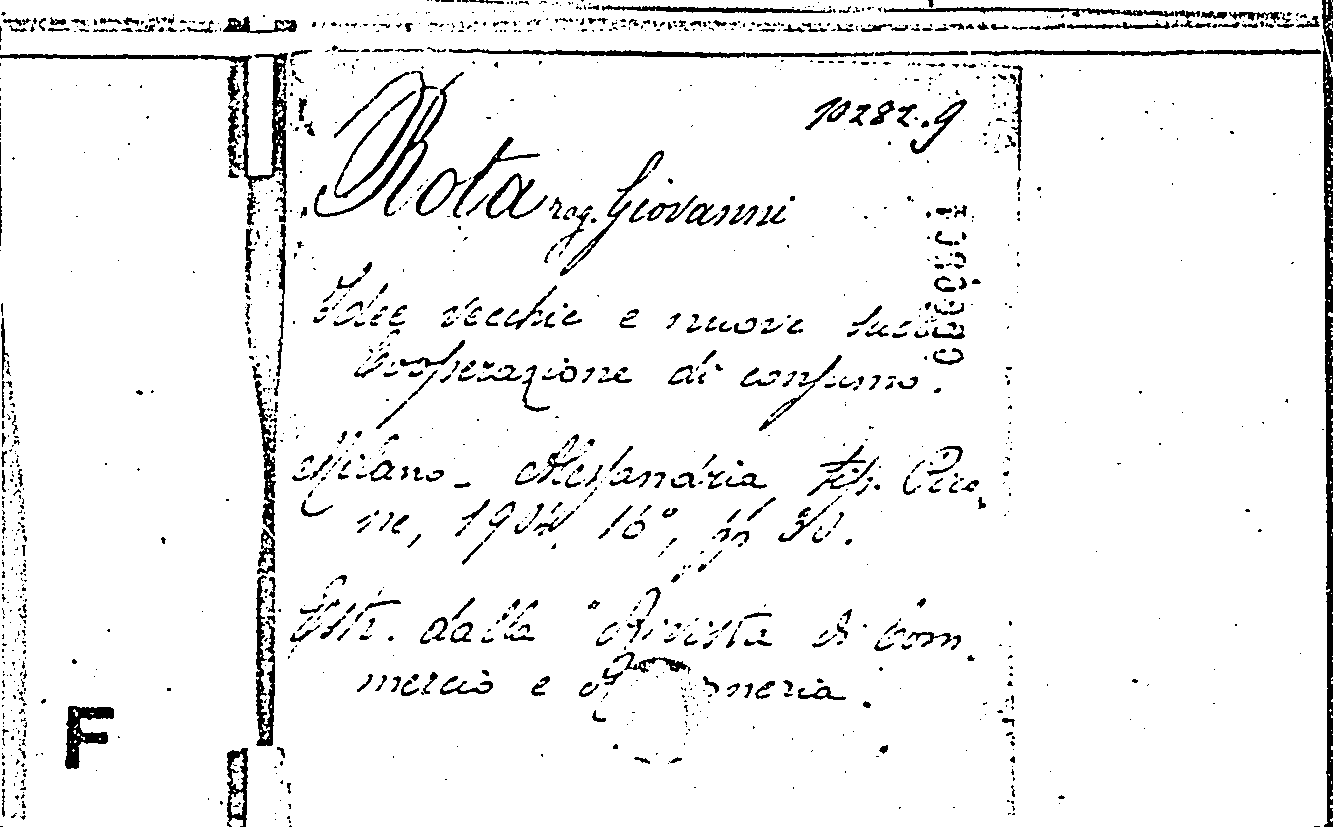 10282.9
Rota rag. Giovanni
Idee vecchie e nuove sulla
Cooperazione di consumo.
Milano - Alessandria, tip. Piro-
ne, 16°, pp 30.
Estr. dalla "Rivista di Com-
mercio e
F